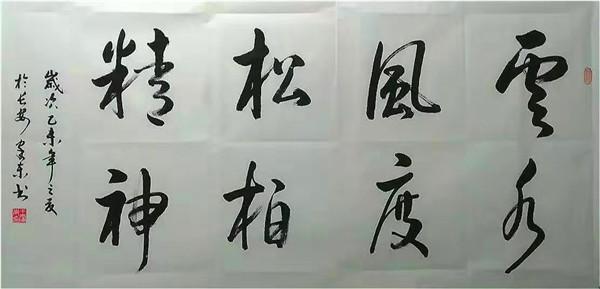 雲水
風度
松柏
精神
歲次乙未年之夏
於長安家東書